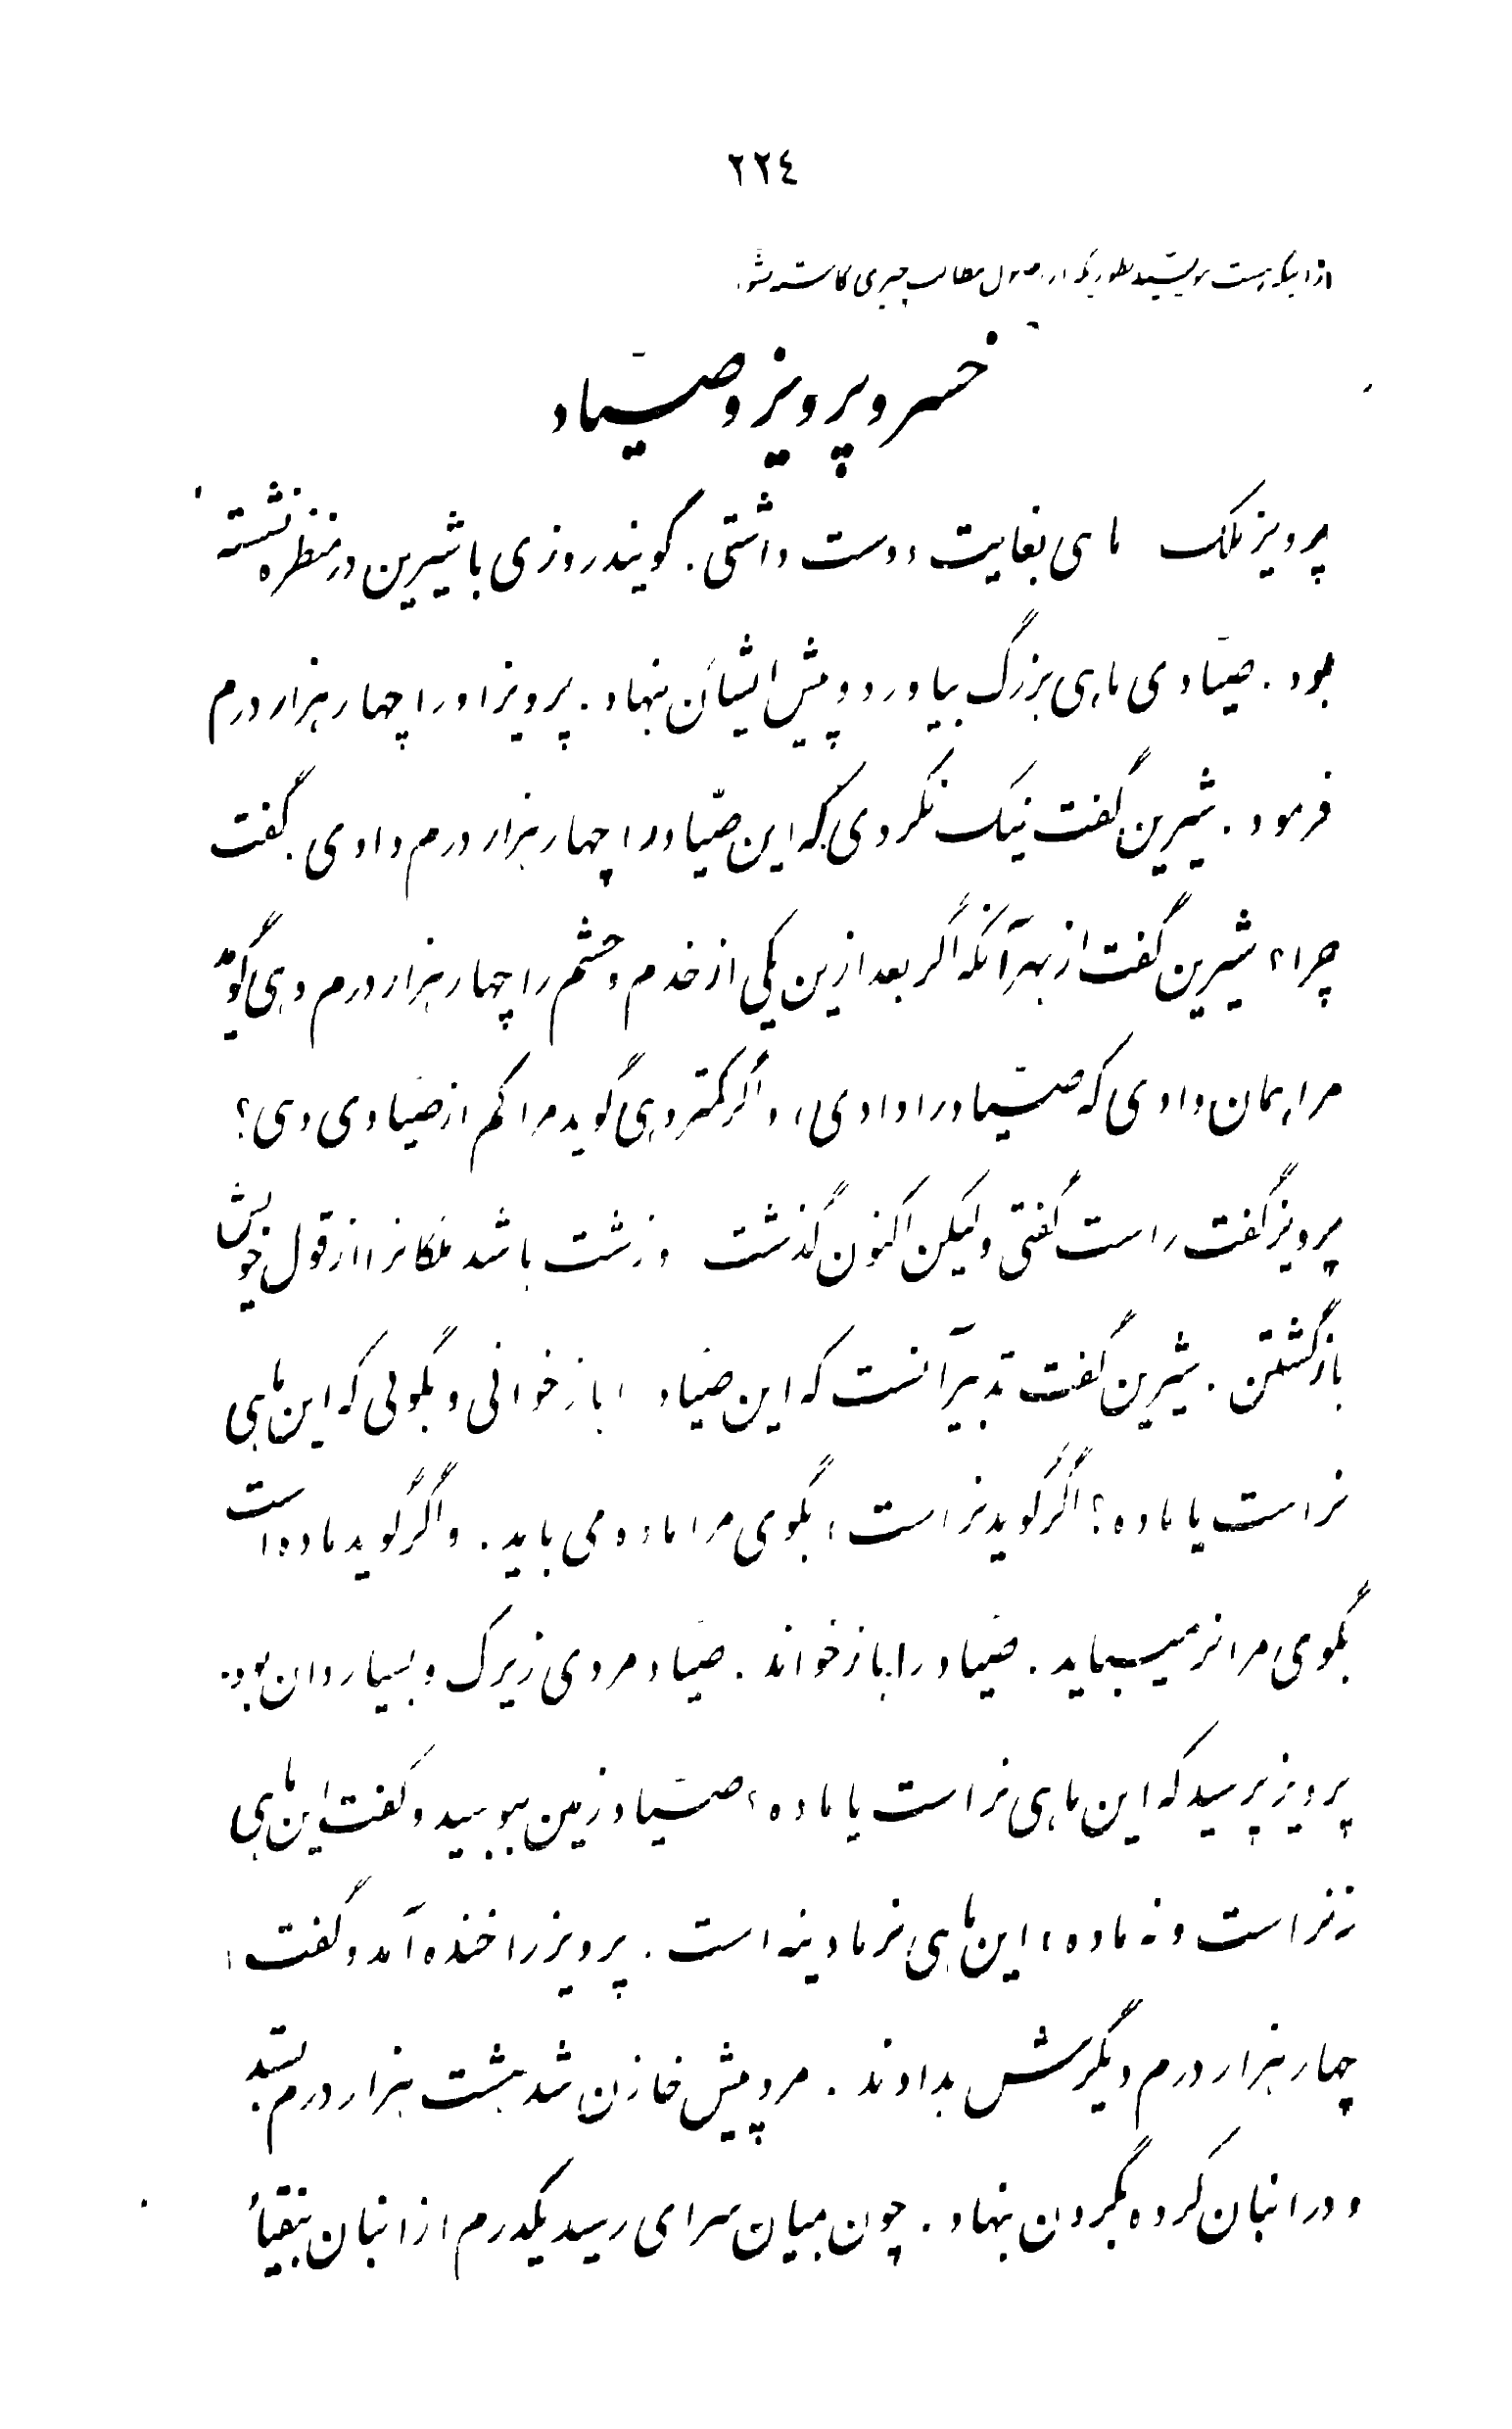 ٢٢٤
خسرو پرویز و صیّاد
پرویز ملک ماهی بغایت دوست داشتی. گویند روزی با شیرین در منظره نشسته
بود. صیّادی ماهی بزرگ بیاورد و پیش ایشان بنهاد. پرویز او را چهار هزار درم
فرمود. شیرین گفت نیک نکردی که این صیّاد را چهار هزار درم دادی. گفت
چرا؟ شیرین گفت از بهر آنکه اگر بعد ازین یکی از خدم و حشم را چهار هزار درم دهی گوید
مرا همان دادی که صیّاد را دادی، و اگر کمتر دهی گوید مرا کم از صیّادی دهی؟
پرویز گفت راست گفتی ولیکن اکنون گذشت و زشت باشد ملکانرا از قول خویش
بازگشتن. شیرین گفت تدبیر آنست که این صیّاد را بازخوانی و بگوئی که این ماهی
نر است یا ماده؟ اگر گوید نر است، بگوی مرا ماده می باید. و اگر گوید ماده است
بگوی مرا نر میباید. صیّاد را بازخواند. صیّاد مردی زیرک و بسیاردان بود.
پرویز پرسید که این ماهی نر است یا ماده؟ صیّاد زمین ببوسید و گفت این ماهی
نه نر است و نه ماده، این ماهی نرمادینه است. پرویز را خنده آمد و گفت:
چهار هزار درم دیگرش بدادند. مرد پیش خازن شد هشت هزار درم بستد
و در انبان کرده بگردن نهاد. چون بمیان سرای رسید یکدرم از انبان بیفتاد